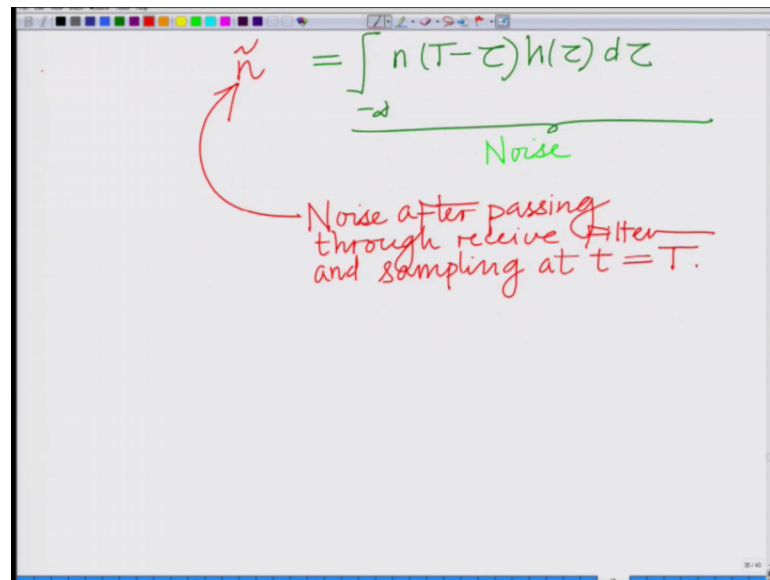 ñ = ∫_{-∞} n(T-τ) h(τ) dτ
Noise
Noise after passing
through receive Filter
and sampling at t = T.
35 / 43